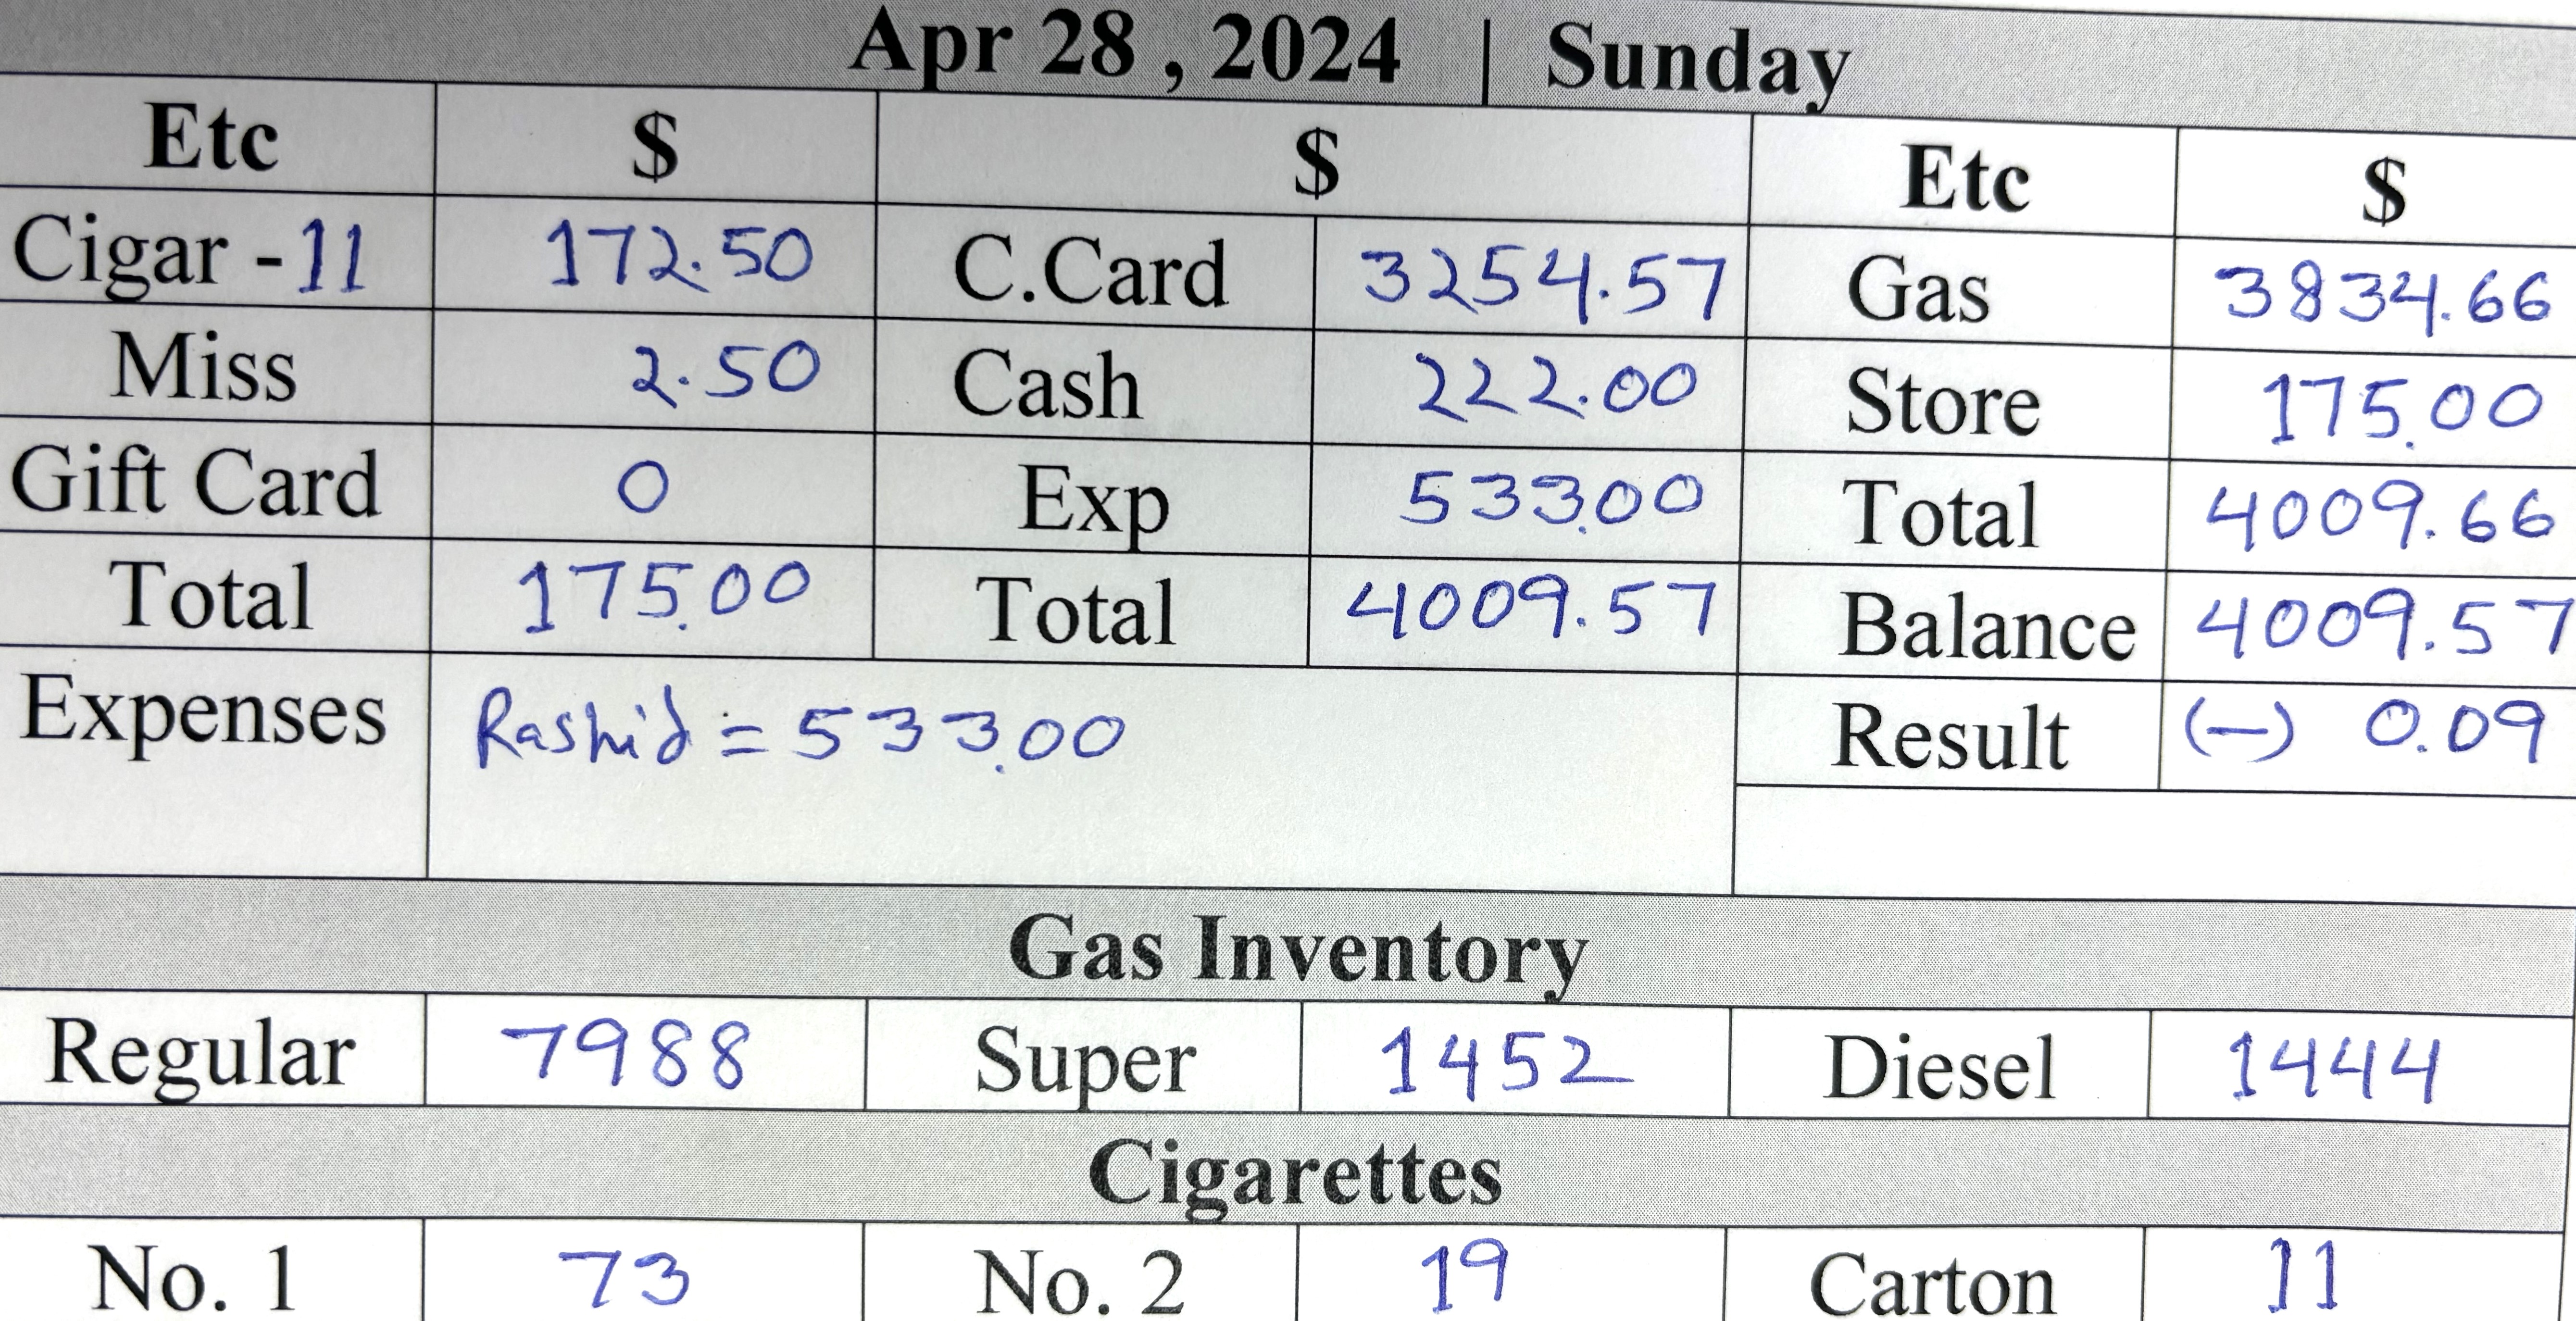 Apr 28 , 2024 | Sunday
Etc $ $ Etc $
Cigar - 11 172.50 C.Card 3254.57 Gas 3834.66
Miss 2.50 Cash 222.00 Store 175.00
Gift Card 0 Exp 533.00 Total 4009.66
Total 175.00 Total 4009.57 Balance 4009.57
Expenses Rashid = 533.00 Result (-) 0.09
Gas Inventory
Regular 7988 Super 1452 Diesel 1444
Cigarettes
No. 1 73 No. 2 19 Carton 11